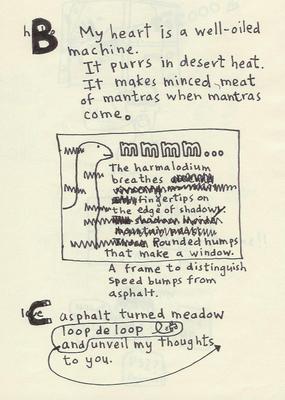 B My heart is a well-oiled
machine.
It purrs in desert heat.
It makes minced meat
of mantras when mantras
come.
mmmm...
The harmalodium
breathes
fingertips on
the edge of shadow
Rounded humps
that make a window.
A frame to distinguish
speed bumps from
asphalt.
C asphalt turned meadow
loop de loop
and unveil my thoughts
to you.